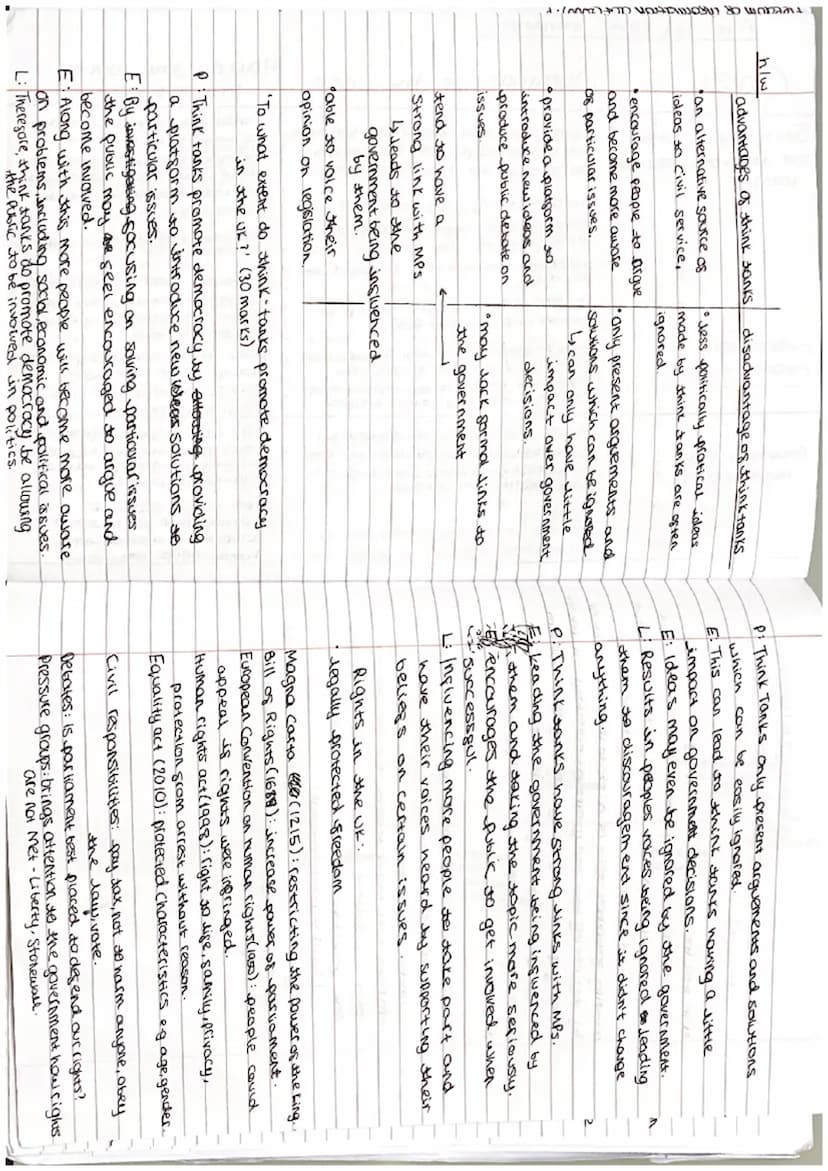 h/w
advantages of think tanks
• an alternative source of
ideas to civil service,
• encourage people to argue
and become more aware
of particular issues.
• provide a platform to
introduce new ideas and
produce public debate on
issues.
tend to have a
strong link with MPs
↳ leads to the
government being influenced
by them.
• able to voice their
opinion on legislation
disadvantage on think tanks
• less politically pratical ideas
made by think tanks are often
ignored
• only present arguements and
solutions which can be ignored
↳ can only have little
impact over government
decisions.
• may lack formal links to
the government
'To what extent do think-tanks promote democracy
in the UK?' (30 marks)
P: Think tanks promote democracy by providing
a platform to introduce new solutions to
particular issues.
E: By focusing on solving particular issues
the public may feel encouraged to argue and
become involved.
E: Along with this more people will become more aware
on problems including social, economic and political issues.
L: Therefore, think tanks do promote democracy be allowing
the public to be involved in politics.
P: Think Tanks only present arguements and solutions
which can be easily ignored.
E: This can lead to think tanks having a little
impact on government decisions.
E: Ideas may even be ignored by the government.
L: Results in peoples voices being ignored leading
them to discouragement since it didn't change
anything.
P: Think tanks have strong links with MPs.
E: Leading the government being influenced by
them and taking the topic more seriously.
E: encourages the public to get involved when
successful.
L: Influencing more people to take part and
have their voices heard by supporting their
beliefs on certain issues.
Rights in the UK:
• legally protected freedom
Magna Carta (1215): restricting the power of the king.
Bill of Rights (1689): increase power of parliament.
European Convention on human rights (1950): people could
appeal if rights were infringed.
Human rights act (1998): right to life, family, privacy,
protection from arrest without reason.
Equality act (2010): protected characteristics e.g age, gender.
Civil responsibilities: pay tax, not to harm anyone, obey
the law, vote.
Debates: Is parliament best placed to defend our rights?
Pressure groups: brings attention to the government how rights
are not met - Liberty, Stonewall.